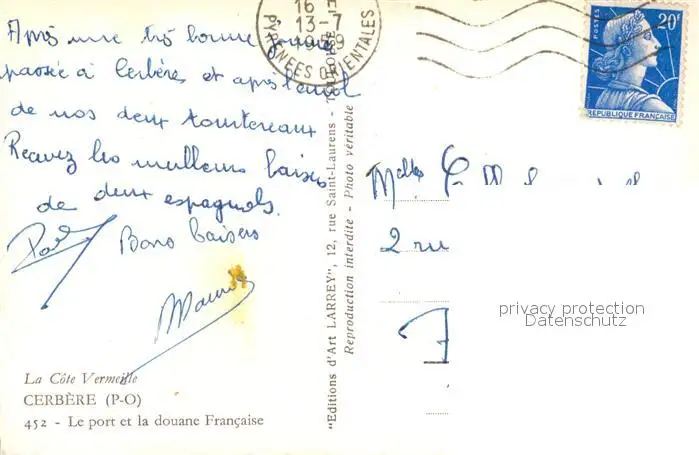 Après une très bonne
passée à Cerbères et après l'envol
de nos deux tourtereaux
Recevez les meilleurs baisers
de deux espagnols.
Bons baisers
La Côte Vermeille
CERBÈRE (P-O)
452 - Le port et la douane Française
"Editions d'Art LARREY", 12, rue Saint-Laurens - TOULOUSE
Reproduction interdite - Photo véritable
16 H
13-7
1959
PYRENEES ORIENTALES
POSTES
20F
REPUBLIQUE FRANÇAISE
Melles
2 rue
privacy protection
Datenschutz